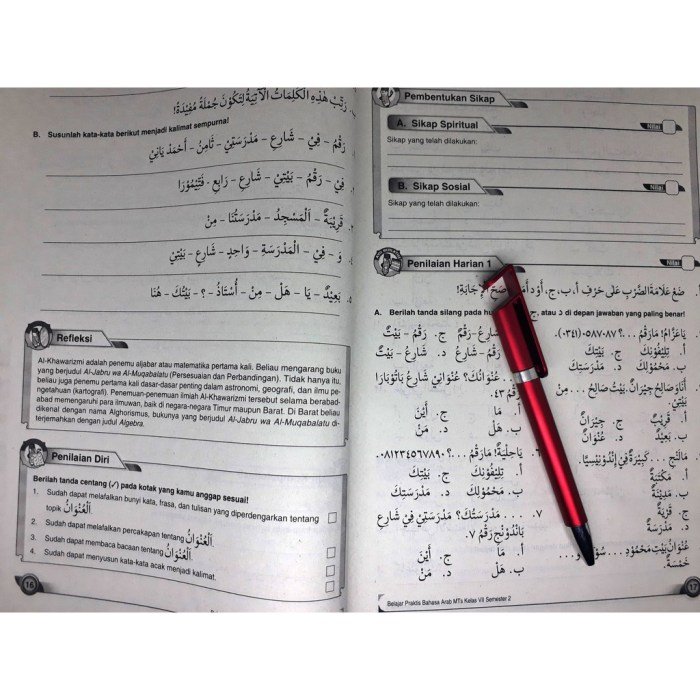 رَتِّبْ هٰذِهِ الْكَلِمَاتِ الْآتِيَةَ لِتَكُوْنَ جُمْلَةً مُفِيْدَةً!
B. Susunlah kata-kata berikut menjadi kalimat sempurna!
رَقْمُ – فِيْ – شَارِعِ – مَدْرَسَتِيْ – ثَامِنُ – أَحْمَدْ يَانِيْ
فِيْ – رَقْمُ – بَيْتِيْ – شَارِعِ – رَابِع – فَتِيْمُوْرَا
قَرِيْبَةٌ – اَلْمَسْجِدُ – مَدْرَسَتُنَا – مِنْ
وَ – فِيْ – الْمَدْرَسَةِ – وَاحِدٍ – شَارِعِ – بَيْتِيْ
٥. بَعِيْدٌ – يَا – هَلْ – مِنْ – أُسْتَاذُ – ؟ – بَيْتُكَ – هُنَا
Refleksi
Al-Khawarizmi adalah penemu aljabar atau matematika pertama kali. Beliau mengarang buku
yang berjudul Al-Jabru wa Al-Muqabalatu (Persesuaian dan Perbandingan). Tidak hanya itu,
beliau juga penemu pertama kali dasar-dasar penting dalam astronomi, geografi, dan ilmu pe-
ngetahuan (kartografi). Penemuan-penemuan ilmiah Al-Khawarizmi tersebut selama berabad-
abad memengaruhi para ilmuwan, baik di negara-negara Timur maupun Barat. Di Barat beliau
dikenal dengan nama Alghorismus, bukunya yang berjudul Al-Jabru wa Al-Muqabalatu di-
terjemahkan dengan judul Algebra.
Penilaian Diri
Berilah tanda centang (✓) pada kotak yang kamu anggap sesuai!
1. Sudah dapat melafalkan bunyi kata, frasa, dan tulisan yang diperdengarkan tentang
topik اَلْعُنْوَانُ.
2. Sudah dapat melafalkan percakapan tentang اَلْعُنْوَانُ.
3. Sudah dapat membaca bacaan tentang اَلْعُنْوَانُ.
4. Sudah dapat menyusun kata-kata acak menjadi kalimat.
16
Pembentukan Sikap
A. Sikap Spiritual
Nilai
Sikap yang telah dilakukan:
B. Sikap Sosial
Nilai
Sikap yang telah dilakukan:
Penilaian Harian 1
Nilai
ضَعْ عَلَامَةَ الضَّرْبِ عَلَى حَرْفِ أ، ب، ج، أَوْ د أَمَا صَحَّ الْإِجَابَةِ!
A. Berilah tanda silang pada hu ج, atau د di depan jawaban yang paling benar!
يَاعَزَّامُ! مَارَقْمُ . . .؟ ٥٨٧٠٨٧ (٠٣٤١).
أ. تِلِيْفُوْنِكَ ج. بَيْتِكَ
ب. مَحْمُوْلِكَ د. مَدْرَسَتِكَ
أَنَاوَصَالِحٌ جِيْرَانٌ. بَيْتُ صَالِحٍ . . . مِنْ
بَيْتِيْ.
أ. قَرِيْبٌ ج. جِيْرَانٌ
ب. بَعِيْدٌ د. عُنْوَانٌ
مَالَانْج . . . كَبِيْرَةٌ فِيْ إِنْدُوْنِيْسِيَّا.
أ. مَكْتَبَةٌ
ب. مَدِيْنَةٌ
ج. قَرْيَةٌ
د. مَدْرَسَةٌ
عُنْوَانُ بَيْتِ مَحْمُوْدٍ . . . و. . .
خَمْسَةٌ.
شَارِعُ – رَقْمٌ ج. رَقْمُ – بَيْتٌ
رَقْمُ – شَارِعُ د. شَارِعُ – بَيْتٌ
. . . عُنْوَانُكَ؟ عُنْوَانِيْ شَارِعُ بَاتُوْبَارَا
رَقْمُ ٤٣.
أ. مَا ج. أَيْنَ
ب. هَلْ د. مَنْ
يَاحِلْيَةُ! مَارَقْمُ . . .؟ ٠٨١٢٣٤٥٦٧٨٩٠.
أ. تِلِيْفُوْنِكَ ج. بَيْتِكَ
ب. مَحْمُوْلِكَ د. مَدْرَسَتِكَ
٧. . . . مَدْرَسَتُكَ؟ مَدْرَسَتِيْ فِيْ شَارِعِ
بَانْدُوْنْج رَقْمُ ٧.
أ. مَا ج. أَيْنَ
ب. هَلْ د. مَنْ
Belajar Praktis Bahasa Arab MTs Kelas VII Semester 2
17